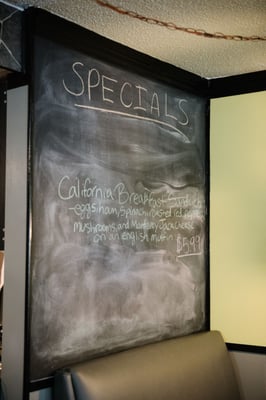 SPECIALS
California Breakfast Sandwich
-eggs, ham, spinach, roasted red
Mushrooms, and Monterey Jack cheese
on an english muffin
$5.99